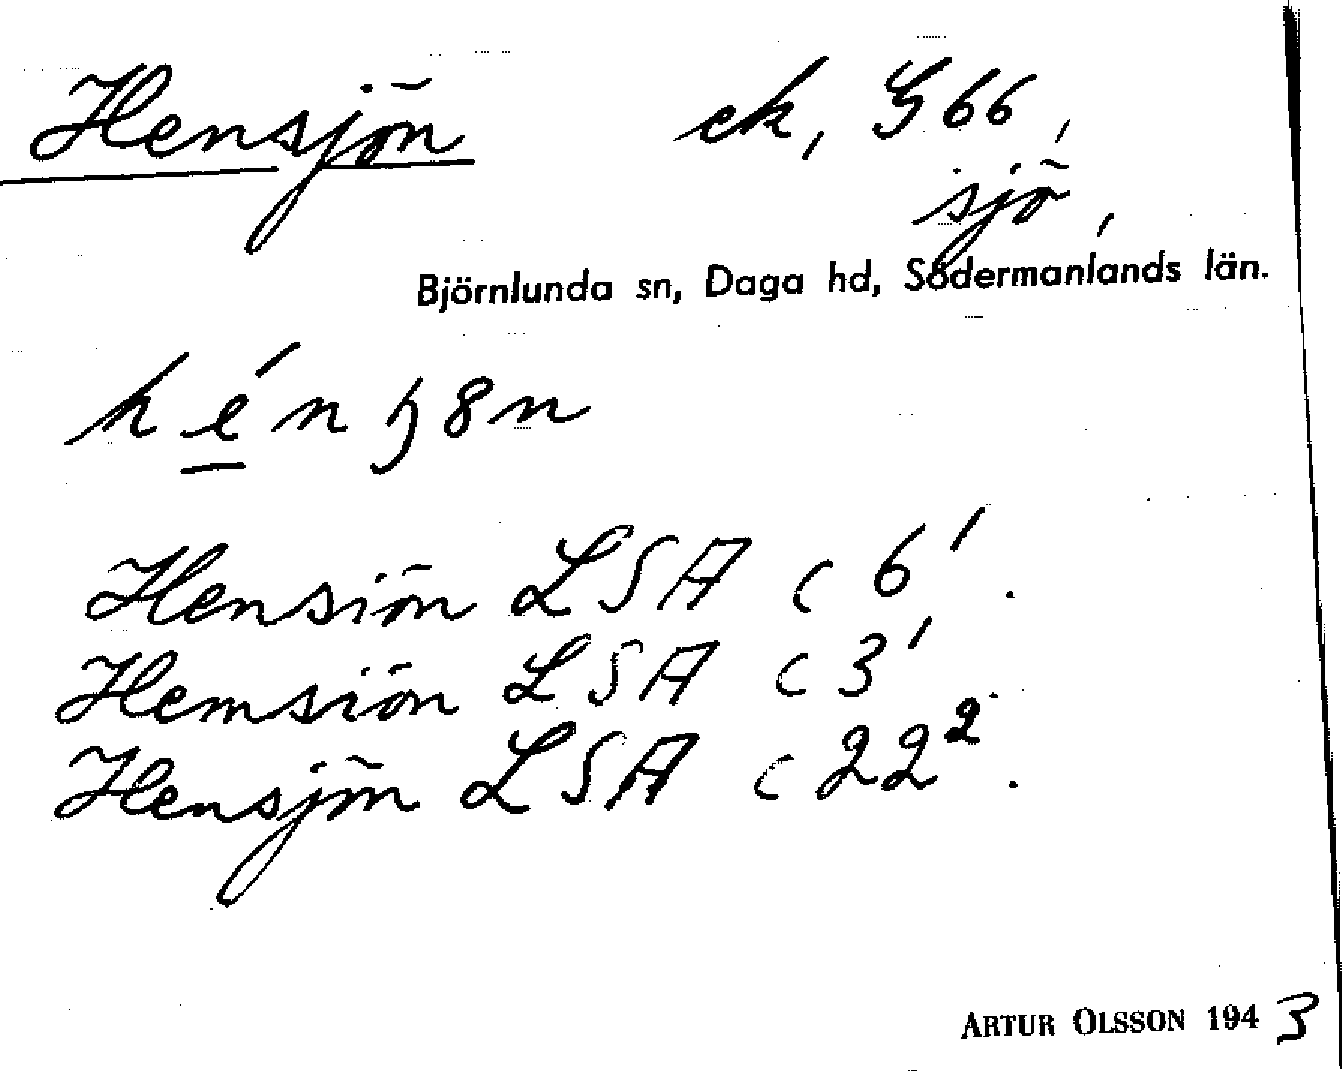 Hensjön ek, G 66,
sjö,
Björnlunda sn, Daga hd, Södermanlands län.
Hensiön LSA c 6¹.
Hemsiön LSA c 3¹
Hensjön LSA c 22².
ARTUR OLSSON 1943